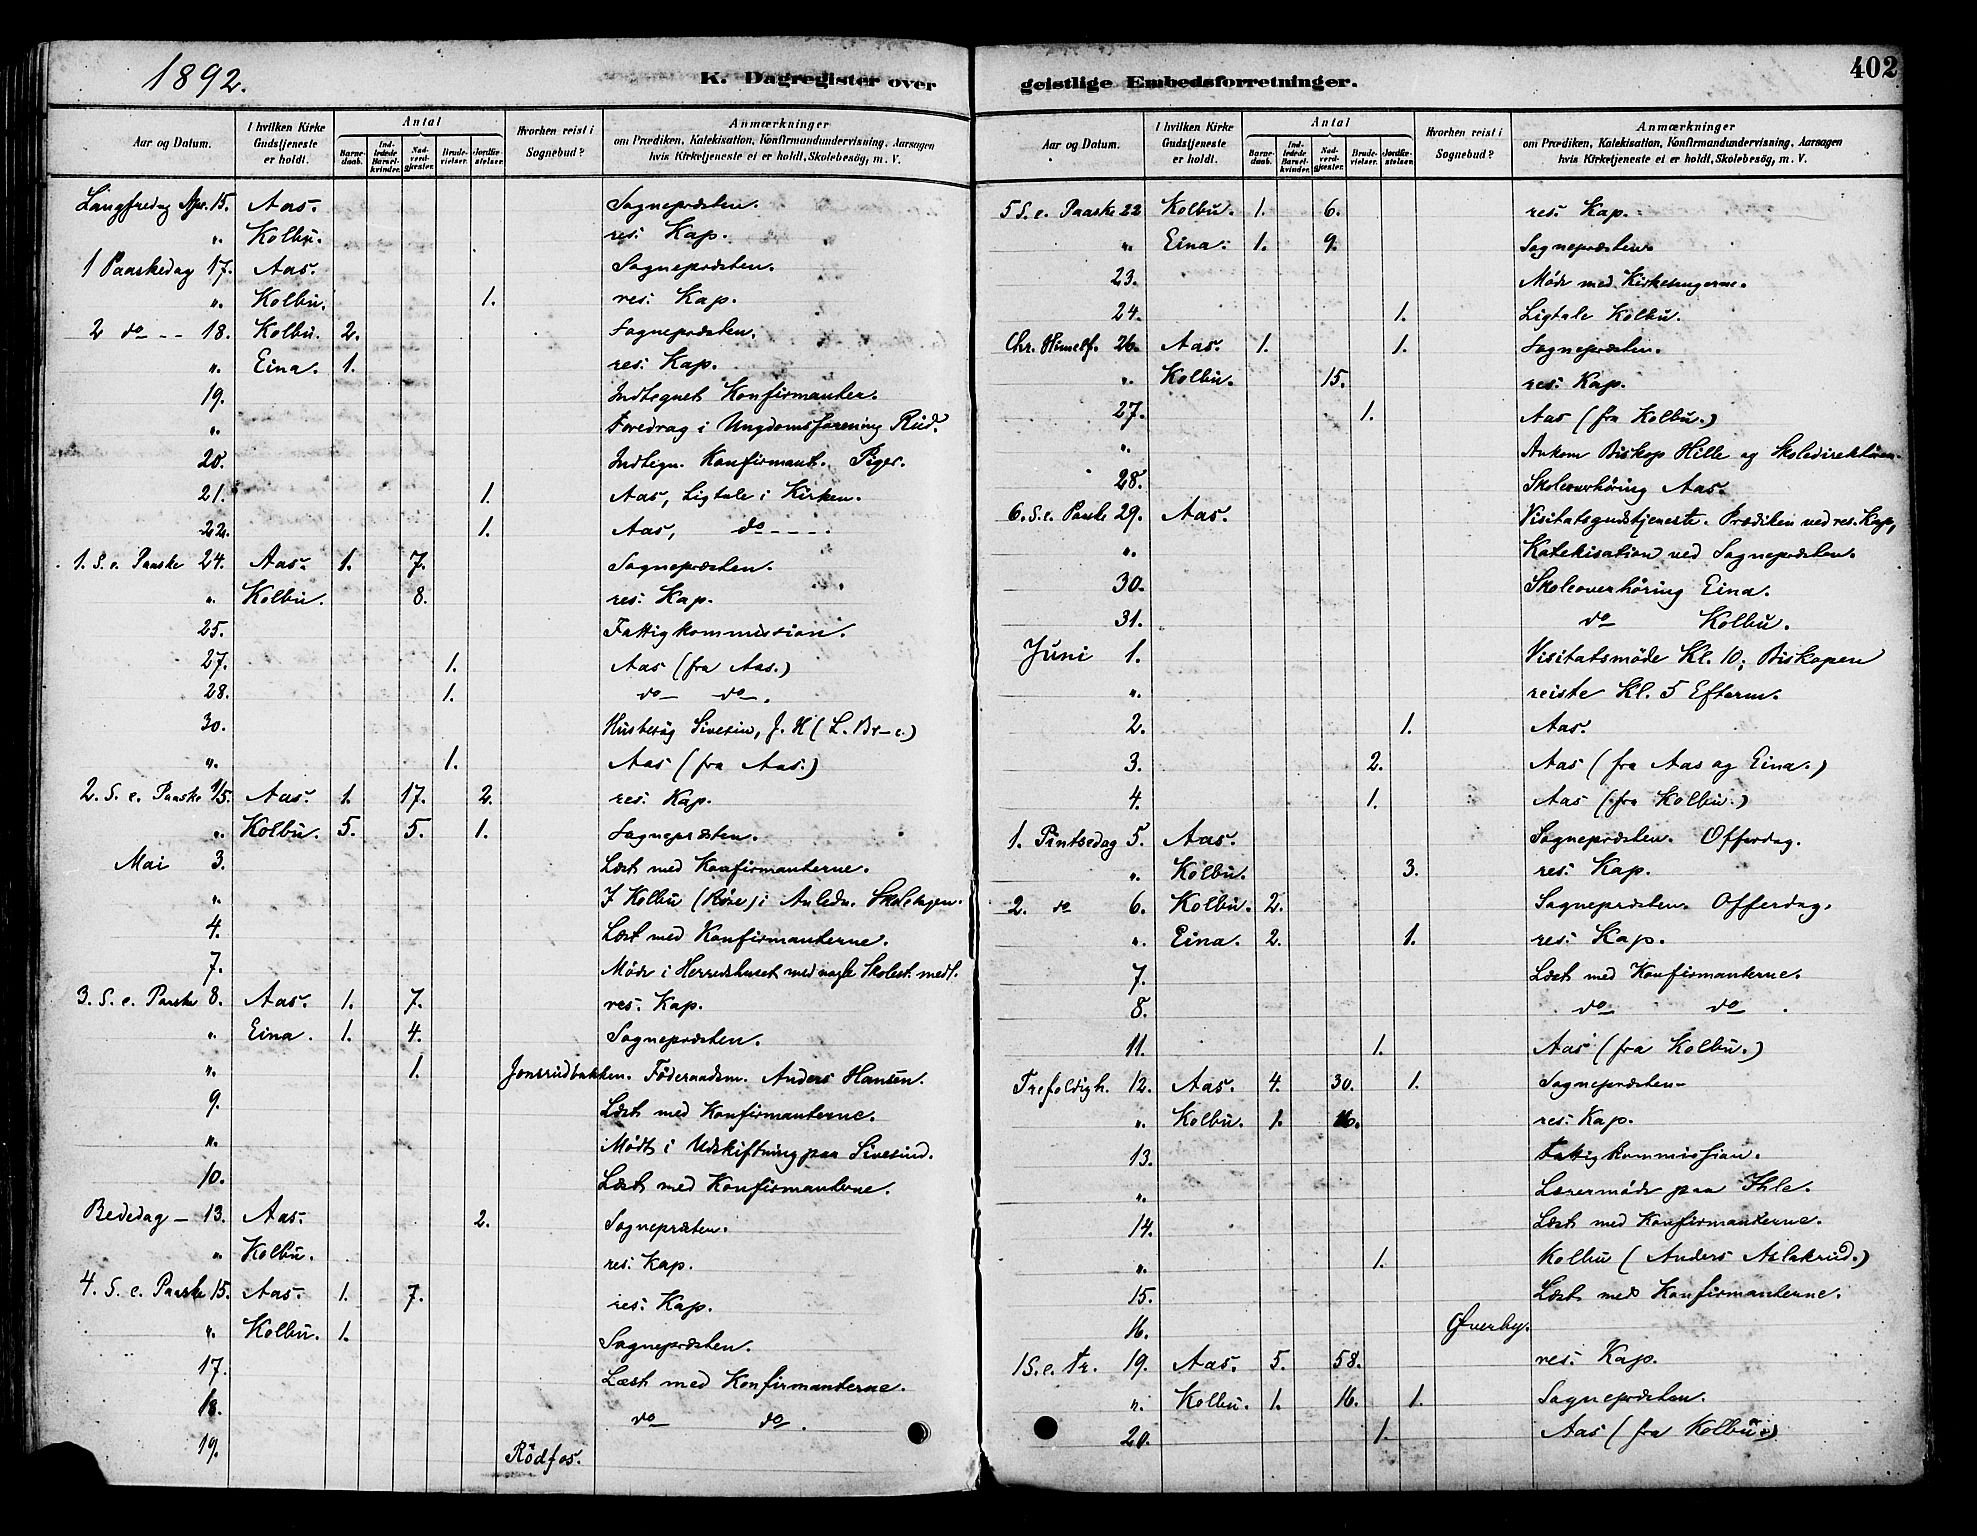 1892.
K. Dagregister over
Aar og Datum. I hvilken Kirke Gudstjeneste er holdt. Antal Barnedaab. Indledede Barselkvinder. Nadverdgjester. Brudevielser. Jordfæstelser. Hvorhen reist i Sognebud? Anmærkninger om Prædiken, Katekisation, Konfirmandundervisning, Aarsagen hvis Kirketjeneste ei er holdt, Skolebesög, m. V.
Langfredag Apr. 15. Aas. Sognepræsten.
" Kolbu. res. Kap.
1 Paaskedag 17. Aas. Sognepræsten.
" Kolbu. 1. res. Kap.
2 do - - 18. Kolbu. 2. Sognepræsten.
" Eina. 1. res. Kap.
19. Indtegnet Konfirmanter.
" Foredrag i Ungdomsforening Rud.
20. Indtegn. Konfirmant. Piger.
21. 1. Aas, Ligtale i Kirken.
22. 1. Aas, do - - - -
1. S. e. Paaske 24. Aas. 1. 7. Sognepræsten.
" Kolbu. 8. res. Kap.
25. Fattigkommission.
27. 1. Aas (fra Aas.)
28. 1. do do.
30. Husbesög Sivesin, J. H (L. Br-e.)
" 1. Aas (fra Aas.)
2. S. e. Paaske 1/5. Aas. 1. 17. 2. res. Kap.
" Kolbu. 5. 5. 1. Sognepræsten.
Mai 3. Læst med Konfirmanterne.
" I Kolbu i Anledn.
4. Læst med Konfirmanterne.
7. Möde i Herredshuset med nogle Skolest. medl.
3. S. e. Paaske 8. Aas. 1. 7. res. Kap.
" Eina. 1. 4. Sognepræsten.
" 1. Jonsrudbakken. Föderaadsm. Anders Hansen.
9. Læst med Konfirmanterne.
" Mödt i Udskiftning paa Sivesind.
10. Læst med Konfirmanterne.
Bededag - 13. Aas. 2. Sognepræsten.
" Kolbu. res. Kap.
4. S. e. Paaske 15. Aas. 1. 7. res. Kap.
" Kolbu. 1. Sognepræsten.
17. Læst med Konfirmanterne.
18. do do.
19. Rödfos.
402
geistlige Embedsforretninger.
Aar og Datum. I hvilken Kirke Gudstjeneste er holdt. Antal Barnedaab. Indledede Barselkvinder. Nadverdgjester. Brudevielser. Jordfæstelser. Hvorhen reist i Sognebud? Anmærkninger om Prædiken, Katekisation, Konfirmandundervisning, Aarsagen hvis Kirketjeneste ei er holdt, Skolebesög, m. V.
5 S. e. Paaske 22 Kolbu. 1. 6. res. Kap.
" Eina. 1. 9. Sognepræsten.
23. Möde med Kirkesangerne.
24. 1. Ligtale Kolbu.
Chr. Himelf. 26. Aas. 1. 1. Sognepræsten.
" Kolbu. 15. res. Kap.
27. 1. Aas (fra Kolbu.)
" Ankom Biskop Hille og Skoledirektören.
28. Skoleoverhöring Aas.
6. S. e. Paaske 29. Aas. Visitatsgudstjeneste. Prædiken ved res. Kap,
" Katekisation ved Sognepræsten.
30. Skoleoverhöring Eina.
31. do Kolbu.
Juni 1. Visitatsmöde Kl. 10; Biskopen
" reiste Kl. 5 Efterm.
2. 1. Aas.
3. 2. Aas (fra Aas og Eina.)
4. 1. Aas (fra Kolbu.)
1. Pintsedag 5. Aas. Sognepræsten. Offerdag.
" Kolbu. 3. res. Kap.
2. do 6. Kolbu. 2. Sognepræsten. Offerdag.
" Eina. 2. 1. res. Kap.
7. Læst med Konfirmanterne.
8. do do.
11. 1. Aas (fra Kolbu.)
Trefoldigh. 12. Aas. 4. 30. 1. Sognepræsten.
" Kolbu. 1. 16. res. Kap.
13. Fattigkommission.
" Lærermöde paa Ihle.
14. Læst med Konfirmanterne.
" 1. Kolbu (Anders Aslakrud.)
15. Læst med Konfirmanterne.
16. Överby.
1 S. e. Tr. 19. Aas. 5. 58. res. Kap.
" Kolbu. 1. 16. 1. Sognepræsten.
20. 1. Aas (fra Kolbu.)